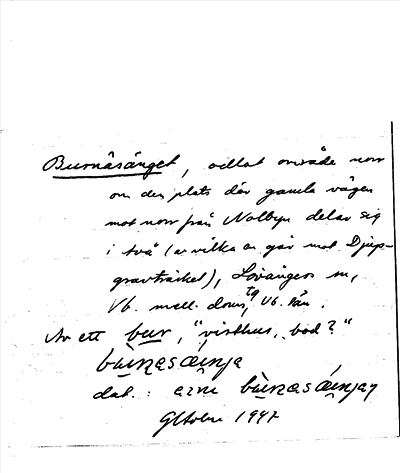 Burnäsänget, odlat område norr
om den plats där gamla vägen
mot norr från Nolbyn delar sig
i två (av vilka en går mot Djup-
gravträsket), Lövångers sn,
Vb. mell. doms. tg, Vb. län.
Av ett bur, "visthus, bod?"
bùi̯nasǽi̯nja
dat.: azne bùi̯nasǽi̯njan
Oktober 1947